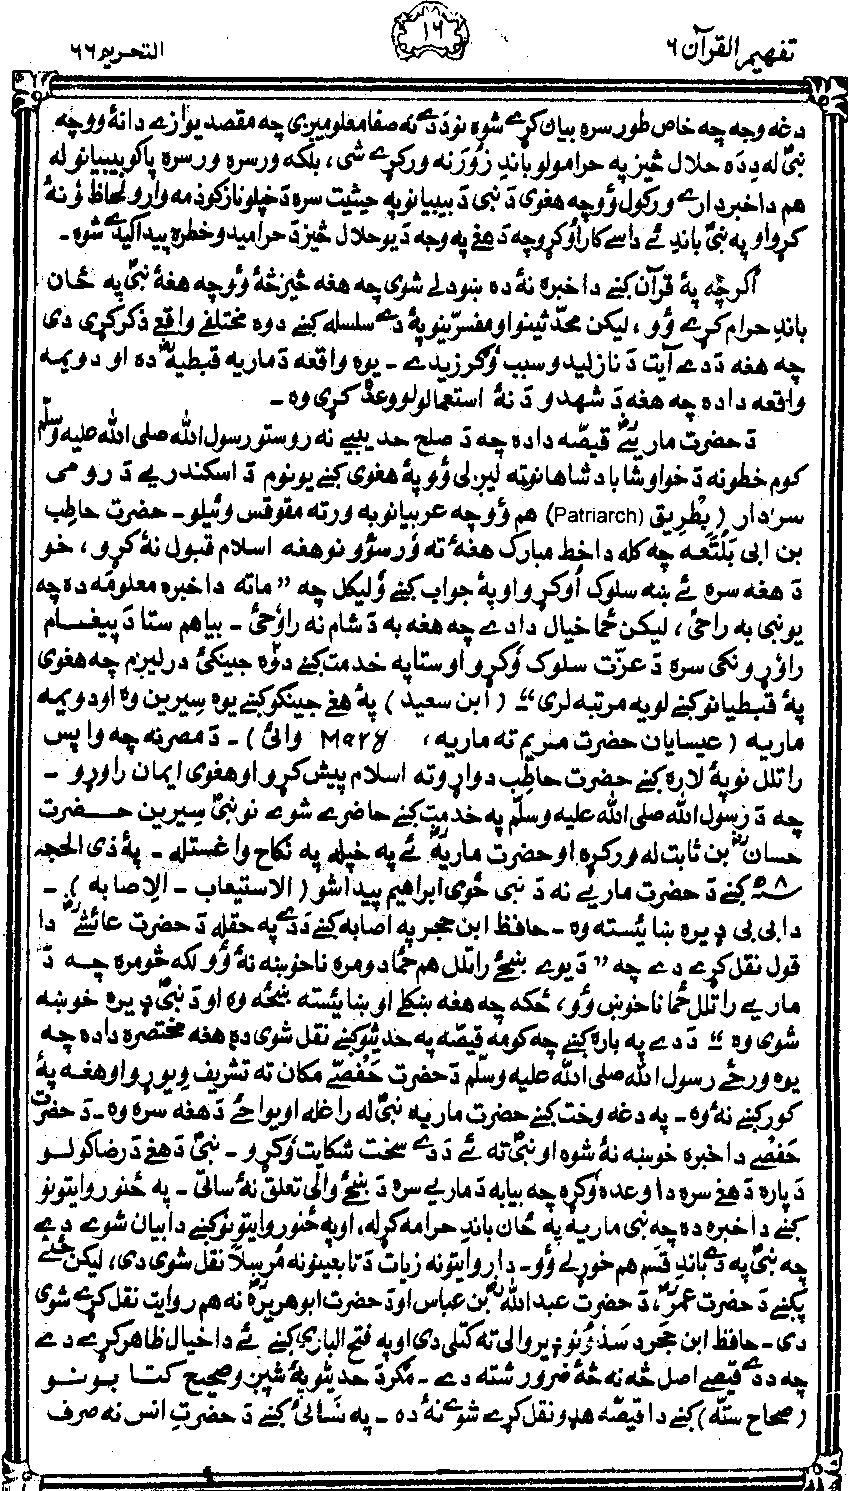 تفهیم القرآن ۶
۱۶
التحریم ۶۶
دغه وجه چه خاص طور سره بیان کړے شوه نو دَدے نه صفا معلومیږی چه مقصد یوازے دا نۀ وو چه
نبیؐ له دِ دَه حلال څیز په حرامولو باندِ زوَرنه ورکړے شی، بلکه ورسره ورسره پاکو بیبیانو له
هم دا خبردارے ورکول وُو چه هغوی دَ نبی دَ بیبیانو په حیثیت سره دَ خپلو نازکو ذمه وارو لحاظ وُنۀ
کړو او په نبیؐ باندِ ئے داسے کار اُوکړو چه دَ هغے په وجه دَ یو حلال څیز دَ حرامیدو خطره پیدا کیدے شوه۔
اگرچه په قرآن کښے دا خبره نۀ ده ښودلے شوی چه هغه څیز څۀ وُو چه هغۀ نبیؐ په ځان
باندِ حرام کړے وُو، لیکن محدّثینو او مفسرینو په دے سلسله کښے دوه مختلفے واقعے ذکر کړی دی
چه هغه دَدے آیت دَ نازلیدو سبب وُګرزیدے۔ یوه واقعه دَ ماریه قبطیهؓ ده او دویمه
واقعه دا ده چه هغه دَ شهدو دَ نۀ استعمالولو وعده کړی وه۔
دَ حضرت ماریےؓ قیصّه دا ده چه دَ صلح حدیبیے نه روستو رسول الله صلی الله علیه وسلّم
کوم خطونه دَ خوا و شا بادشاهانو ته لیږلی وُو په هغوی کښے یو نوم دَ اسکندریے دَ رومی
سردار (بِطْرِیق (Patriarch) هم وُو چه عربیانو به ورته مقوقس وئیلو۔ حضرت حاطِب
بن ابی بَلْتَعَه چه کله دا خط مبارک هغۀ ته وُرسوو نو هغه اسلام قبول نۀ کړو، خو
دَ هغه سره ئے ښه سلوک اُوکړو او په جواب کښے وُلیکل چه ”ماته دا خبره معلومه ده چه
یو نبی به راځی، لیکن ځما خیال دا دے چه هغه به دَ شام نه راوځی۔ بیا هم ستا دَ پیغام
راوړونکی سره دَ عزّت سلوک وُکړو او ستا په خدمت کښے دوه جینکئ درلیږم چه هغوی
په قبطیانو کښے لویه مرتبه لری“ (اُبن سعید) په هغے جینکو کښے یوه سِیرین وه او دویمه
ماریه (عیسایان حضرت مریم ته ماریه، Mary وائی)۔ دَ مصر نه چه واپس
راتلل نو په لاره کښے حضرت حاطِب دواړو ته اسلام پیش کړو او هغوی ایمان راوړو۔
چه دَ رسول الله صلی الله علیه وسلّم په خدمت کښے حاضرے شوے نو نبیؐ سِیرین حضرت
حسانؓ بن ثابت له ورکړه او حضرت ماریهؓ ئے په خپله په نکاح واغستله۔ په ذی الحجه
۸ھ کښے دَ حضرت ماریے نه دَ نبی ځوی ابراهیم پیدا شو (الاستیعاب۔ الاصابه)۔
دا بی بی ډیره ښائسته وه۔ حافظ ابن حجر په اصابه کښے دَدے په حقله دَ حضرت عائشےؓ دا
قول نقل کړے دے چه ”دَ یوے ښځے راتلل هم ځما دومره ناخوښه نۀ وُو لکه څومره چه دَ
ماریے راتلل ځما ناخوښ وُو، ځکه چه هغه ښکلے او ښائسته ښځه وه او دَ نبیؐ ډیره خوښه
شوی وه“ دَدے په باره کښے چه کومه قیصّه په حدیثو کښے نقل شوی ده هغه مختصره دا ده چه
یوه ورځ رسول الله صلی الله علیه وسلّم دَ حضرت حَفْصے مکان ته تشریف وریوړو او هغه په
کور کښے نۀ وه۔ په دغه وخت کښے حضرت ماریه نبیؐ له راغله او یواځے دَ هغه سره وه۔ دَ حضرت
حَفصے دا خبره خوښه نۀ شوه او نبیؐ ته ئے دَدے سخت شکایت وُکړو۔ نبیؐ دَ هغے دَ رضا کولو
دَ پاره دَ هغے سره دا وعده وُکړه چه بیا به دَ ماریے سره دَ ښځے والی تعلق نۀ ساتی۔ په ځنو روایتونو
کښے دا خبره ده چه نبی ماریه په ځان باندِ حرامه کړله، او په ځنو روایتونو کښے دا بیان شوے دے
چه نبیؐ په دے باندِ قسم هم خوړلے وُو۔ دا روایتونه زیات دَ تابعینونه مُرسِلاً نقل شوی دی، لیکن ځنے
پکښے دَ حضرت عمرؓ، دَ حضرت عبداللهؓ بن عباس او دَ حضرت ابوهریرهؓ نه هم روایت نقل کړے شوی
دی۔ حافظ ابن حجر دَ سندونو ډیروالی ته کتلی دی او په فتح الباری کښے ئے دا خیال ظاهر کړے دے
چه دَدے قیصے اصل څه نه څۀ ضرور شته دے۔ مگر دَ حدیثو په شپږ و صحیح کتابونو
(صحاح سته) کښے دا قیصّه هډو نقل کړے شوے نۀ ده۔ په نَسائی کښے دَ حضرتِ انس نه صرف